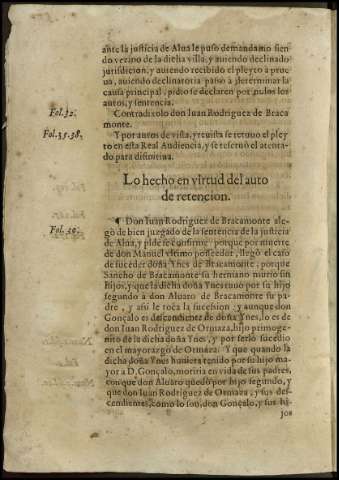 ante la justicia de Alua le puso demanda no sien
do vezino de la dicha villa, y auiendo declinado
jurisdicion, y auiendo recibido el pleyto a prue
ua, auiendo declinatoria passò a determinar la
causa principal, pidio se declaren por nulos los
autos, y sentencia.
Fol. 32. Contradixolo don Iuan Rodriguez de Braca
monte.
Fol. 35. 38. Y por autos de vista, y reuista se retuuo el pley
to en esta Real Audiencia, y se reseruò el atenta-
do para difinitiua.
Lo hecho en virtud del auto
de retencion.
Fol. 50. ¶ Don Iuan Rodriguez de Bracamonte ale-
gò de bien juzgado de la sentencia de la justicia
de Alua, y pide se confirme: porque por muerte
de don Manuel vltimo posseedor, llegò el caso
de suceder doña Ynes de Bracamonte, porque
Sancho de Bracamonte su hermano murio sin
hijos, y que la dicha doña Ynes tuuo por su hijo
segundo à don Aluaro de Bracamonte su pa-
dre, y assi le toca la sucesion, y aunque don
Gonçalo es descendiente de doña Ynes, lo es de
don Iuan Rodriguez de Ormaza, hijo primoge-
nito de la dicha doña Ynes, y por serlo sucedio
en el mayorazgo de Ormaza: Y que quando la
dicha doña Ynes huuiera tenido por su hijo ma
yor a D. Gonçalo, moriria en vida de sus padres,
con que don Aluaro quedò por hijo segundo, y
que don Iuan Rodriguez de Ormaza, y sus des-
cendientes, como lo son, don Gonçalo, y sus hi-
jos